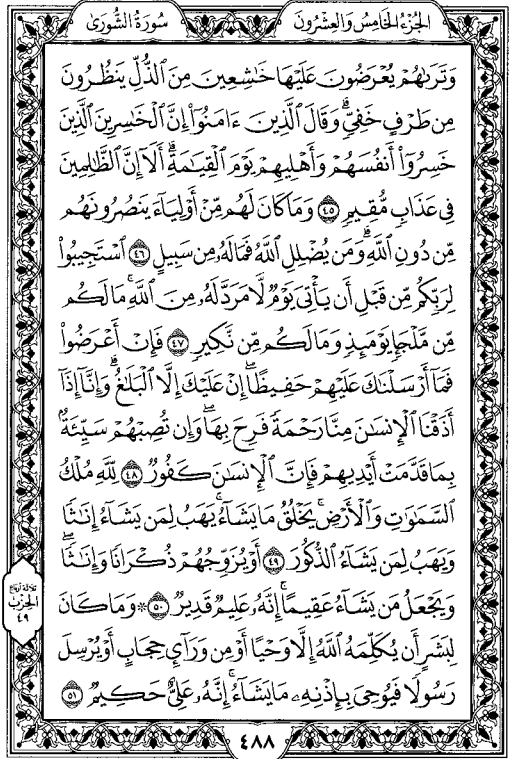 الجُزْءُ الخَامِسُ وَالعِشْرُونَ
سُورَةُ الشُّورَىٰ
وَتَرَىٰهُمْ يُعْرَضُونَ عَلَيْهَا خَٰشِعِينَ مِنَ ٱلذُّلِّ يَنظُرُونَ
مِن طَرْفٍ خَفِيٍّ ۗ وَقَالَ ٱلَّذِينَ ءَامَنُوٓا۟ إِنَّ ٱلْخَٰسِرِينَ ٱلَّذِينَ
خَسِرُوٓا۟ أَنفُسَهُمْ وَأَهْلِيهِمْ يَوْمَ ٱلْقِيَٰمَةِ ۗ أَلَآ إِنَّ ٱلظَّٰلِمِينَ
فِى عَذَابٍ مُّقِيمٍ ٤٥ وَمَا كَانَ لَهُم مِّنْ أَوْلِيَآءَ يَنصُرُونَهُم
مِّن دُونِ ٱللَّهِ ۗ وَمَن يُضْلِلِ ٱللَّهُ فَمَا لَهُۥ مِن سَبِيلٍ ٤٦ ٱسْتَجِيبُوا۟
لِرَبِّكُم مِّن قَبْلِ أَن يَأْتِىَ يَوْمٌ لَّا مَرَدَّ لَهُۥ مِنَ ٱللَّهِ ۚ مَا لَكُم
مِّن مَّلْجَإٍ يَوْمَئِذٍ وَمَا لَكُم مِّن نَّكِيرٍ ٤٧ فَإِنْ أَعْرَضُوا۟
فَمَآ أَرْسَلْنَٰكَ عَلَيْهِمْ حَفِيظًا ۖ إِنْ عَلَيْكَ إِلَّا ٱلْبَلَٰغُ ۗ وَإِنَّآ إِذَآ
أَذَقْنَا ٱلْإِنسَٰنَ مِنَّا رَحْمَةً فَرِحَ بِهَا ۖ وَإِن تُصِبْهُمْ سَيِّئَةٌۢ
بِمَا قَدَّمَتْ أَيْدِيهِمْ فَإِنَّ ٱلْإِنسَٰنَ كَفُورٌ ٤٨ لِّلَّهِ مُلْكُ
ٱلسَّمَٰوَٰتِ وَٱلْأَرْضِ ۚ يَخْلُقُ مَا يَشَآءُ ۚ يَهَبُ لِمَن يَشَآءُ إِنَٰثًا
وَيَهَبُ لِمَن يَشَآءُ ٱلذُّكُورَ ٤٩ أَوْ يُزَوِّجُهُمْ ذُكْرَانًا وَإِنَٰثًا ۖ
وَيَجْعَلُ مَن يَشَآءُ عَقِيمًا ۚ إِنَّهُۥ عَلِيمٌ قَدِيرٌ ٥٠ ۞ وَمَا كَانَ
لِبَشَرٍ أَن يُكَلِّمَهُ ٱللَّهُ إِلَّا وَحْيًا أَوْ مِن وَرَآئِ حِجَابٍ أَوْ يُرْسِلَ
رَسُولًا فَيُوحِىَ بِإِذْنِهِۦ مَا يَشَآءُ ۚ إِنَّهُۥ عَلِىٌّ حَكِيمٌ ٥١
ثلاثة أرباع
الحزب
٤٩
٤٨٨